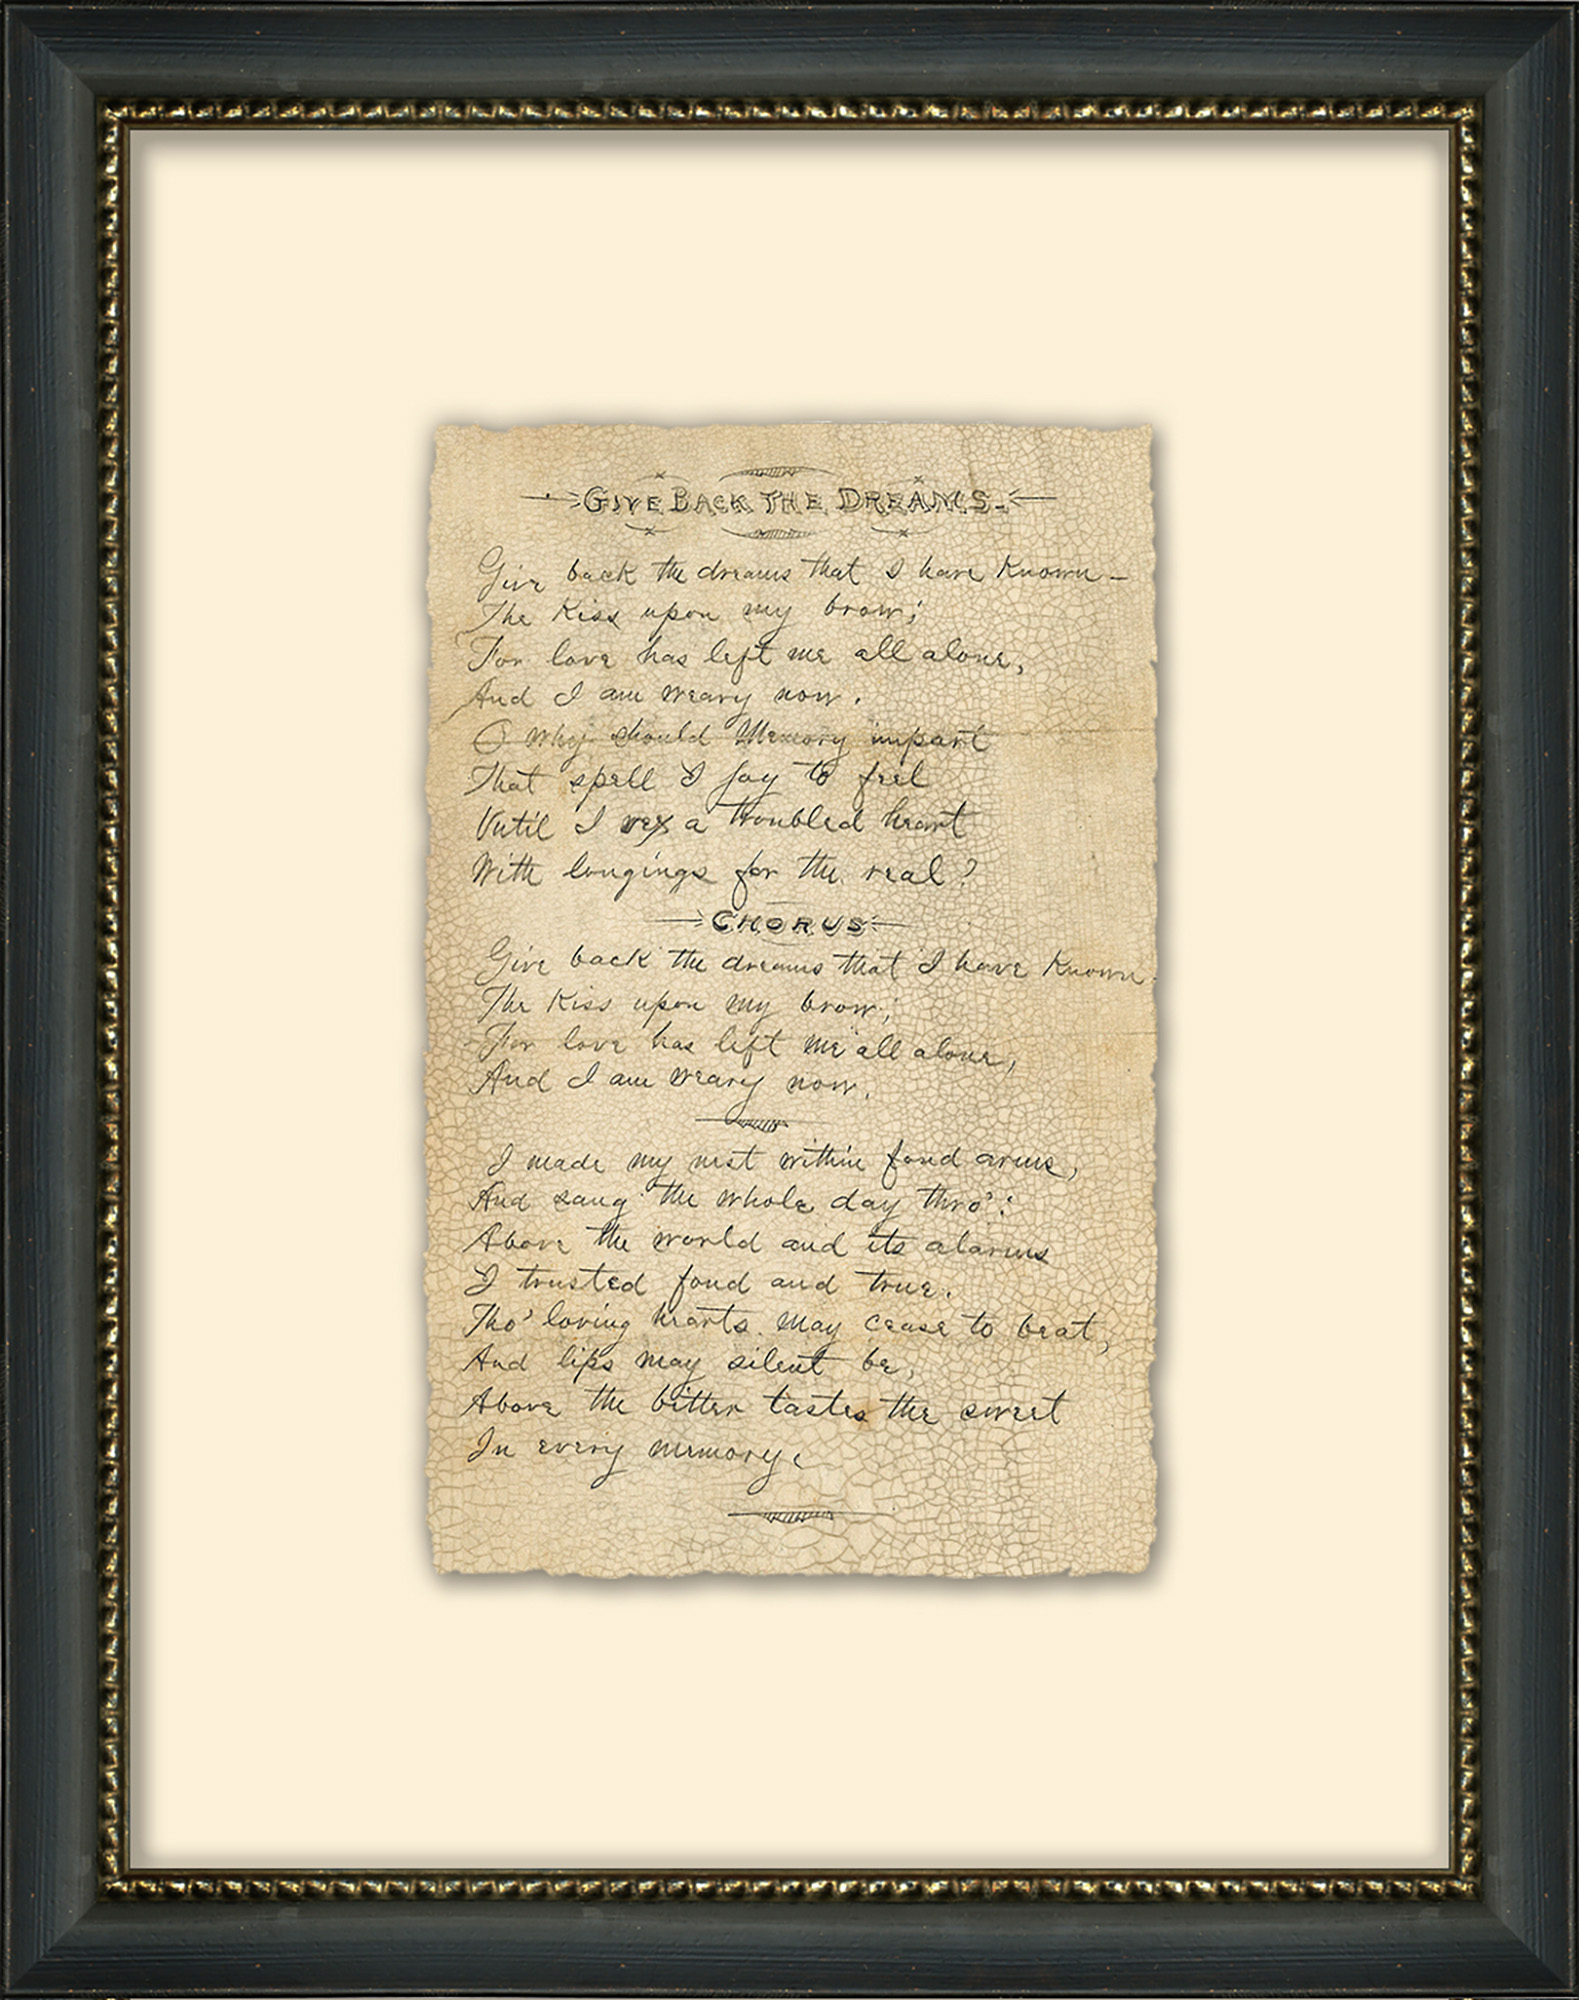 GIVE BACK THE DREAMS.
Give back the dreams that I have known –
The kiss upon my brow;
For love has left me all alone,
And I am weary now.
O why should Memory impart
That spell I joy to feel
Until I vex a troubled heart
With longings for the real?
CHORUS
Give back the dreams that I have known
The kiss upon my brow;
For love has left me all alone,
And I am weary now.
I made my nest within fond arms,
And sang the whole day thro':
Above the world and its alarms
I trusted fond and true.
Tho' loving hearts may cease to beat,
And lips may silent be,
Above the bitter tastes the sweet
In every memory.